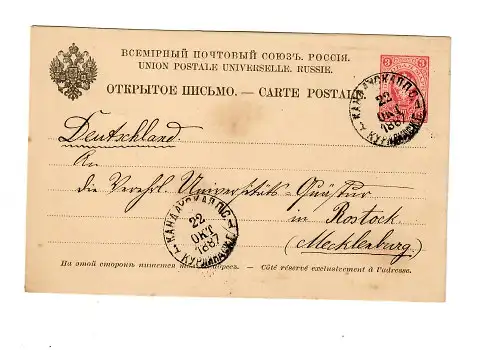 ВСЕМІРНЫЙ ПОЧТОВЫЙ СОЮЗЪ. РОССІЯ.
UNION POSTALE UNIVERSELLE. RUSSIE.
ОТКРЫТОЕ ПИСЬМО. — CARTE POSTALE
3 3
22
ОКТ
1887
Deutschland.
An
die Verehrl. Universitäts-Quästur
in Rostock
(Mecklenburg).
22
ОКТ
1887
На этой сторонѣ пишется адресъ. — Côté réservé exclusivement à l'adresse.